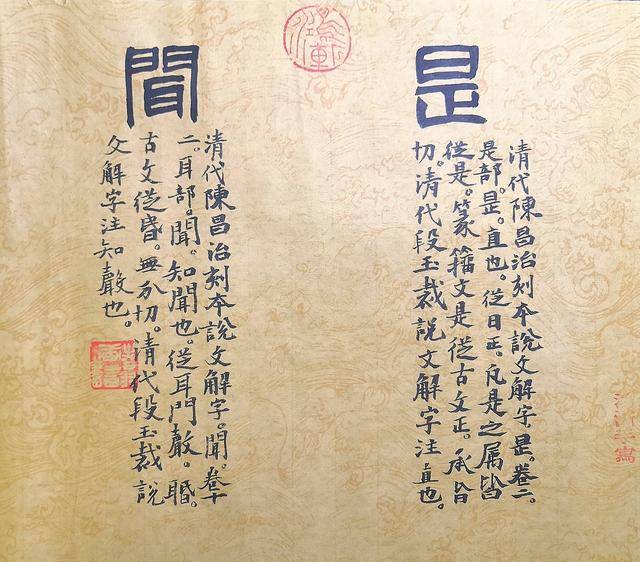 是
清代陳昌治刻本說文解字是。卷二。
是部。昰。直也。從日正。凡是之属皆
從是。篆籀文是從古文正。承旨
切。清代段玉裁說文解字注直也。
聞
清代陳昌治刻本說文解字。聞。卷十
二。耳部。聞。知聞也。從耳門聲。䎽。
古文從昏。無分切。清代段玉裁說
文解字注知聲也。